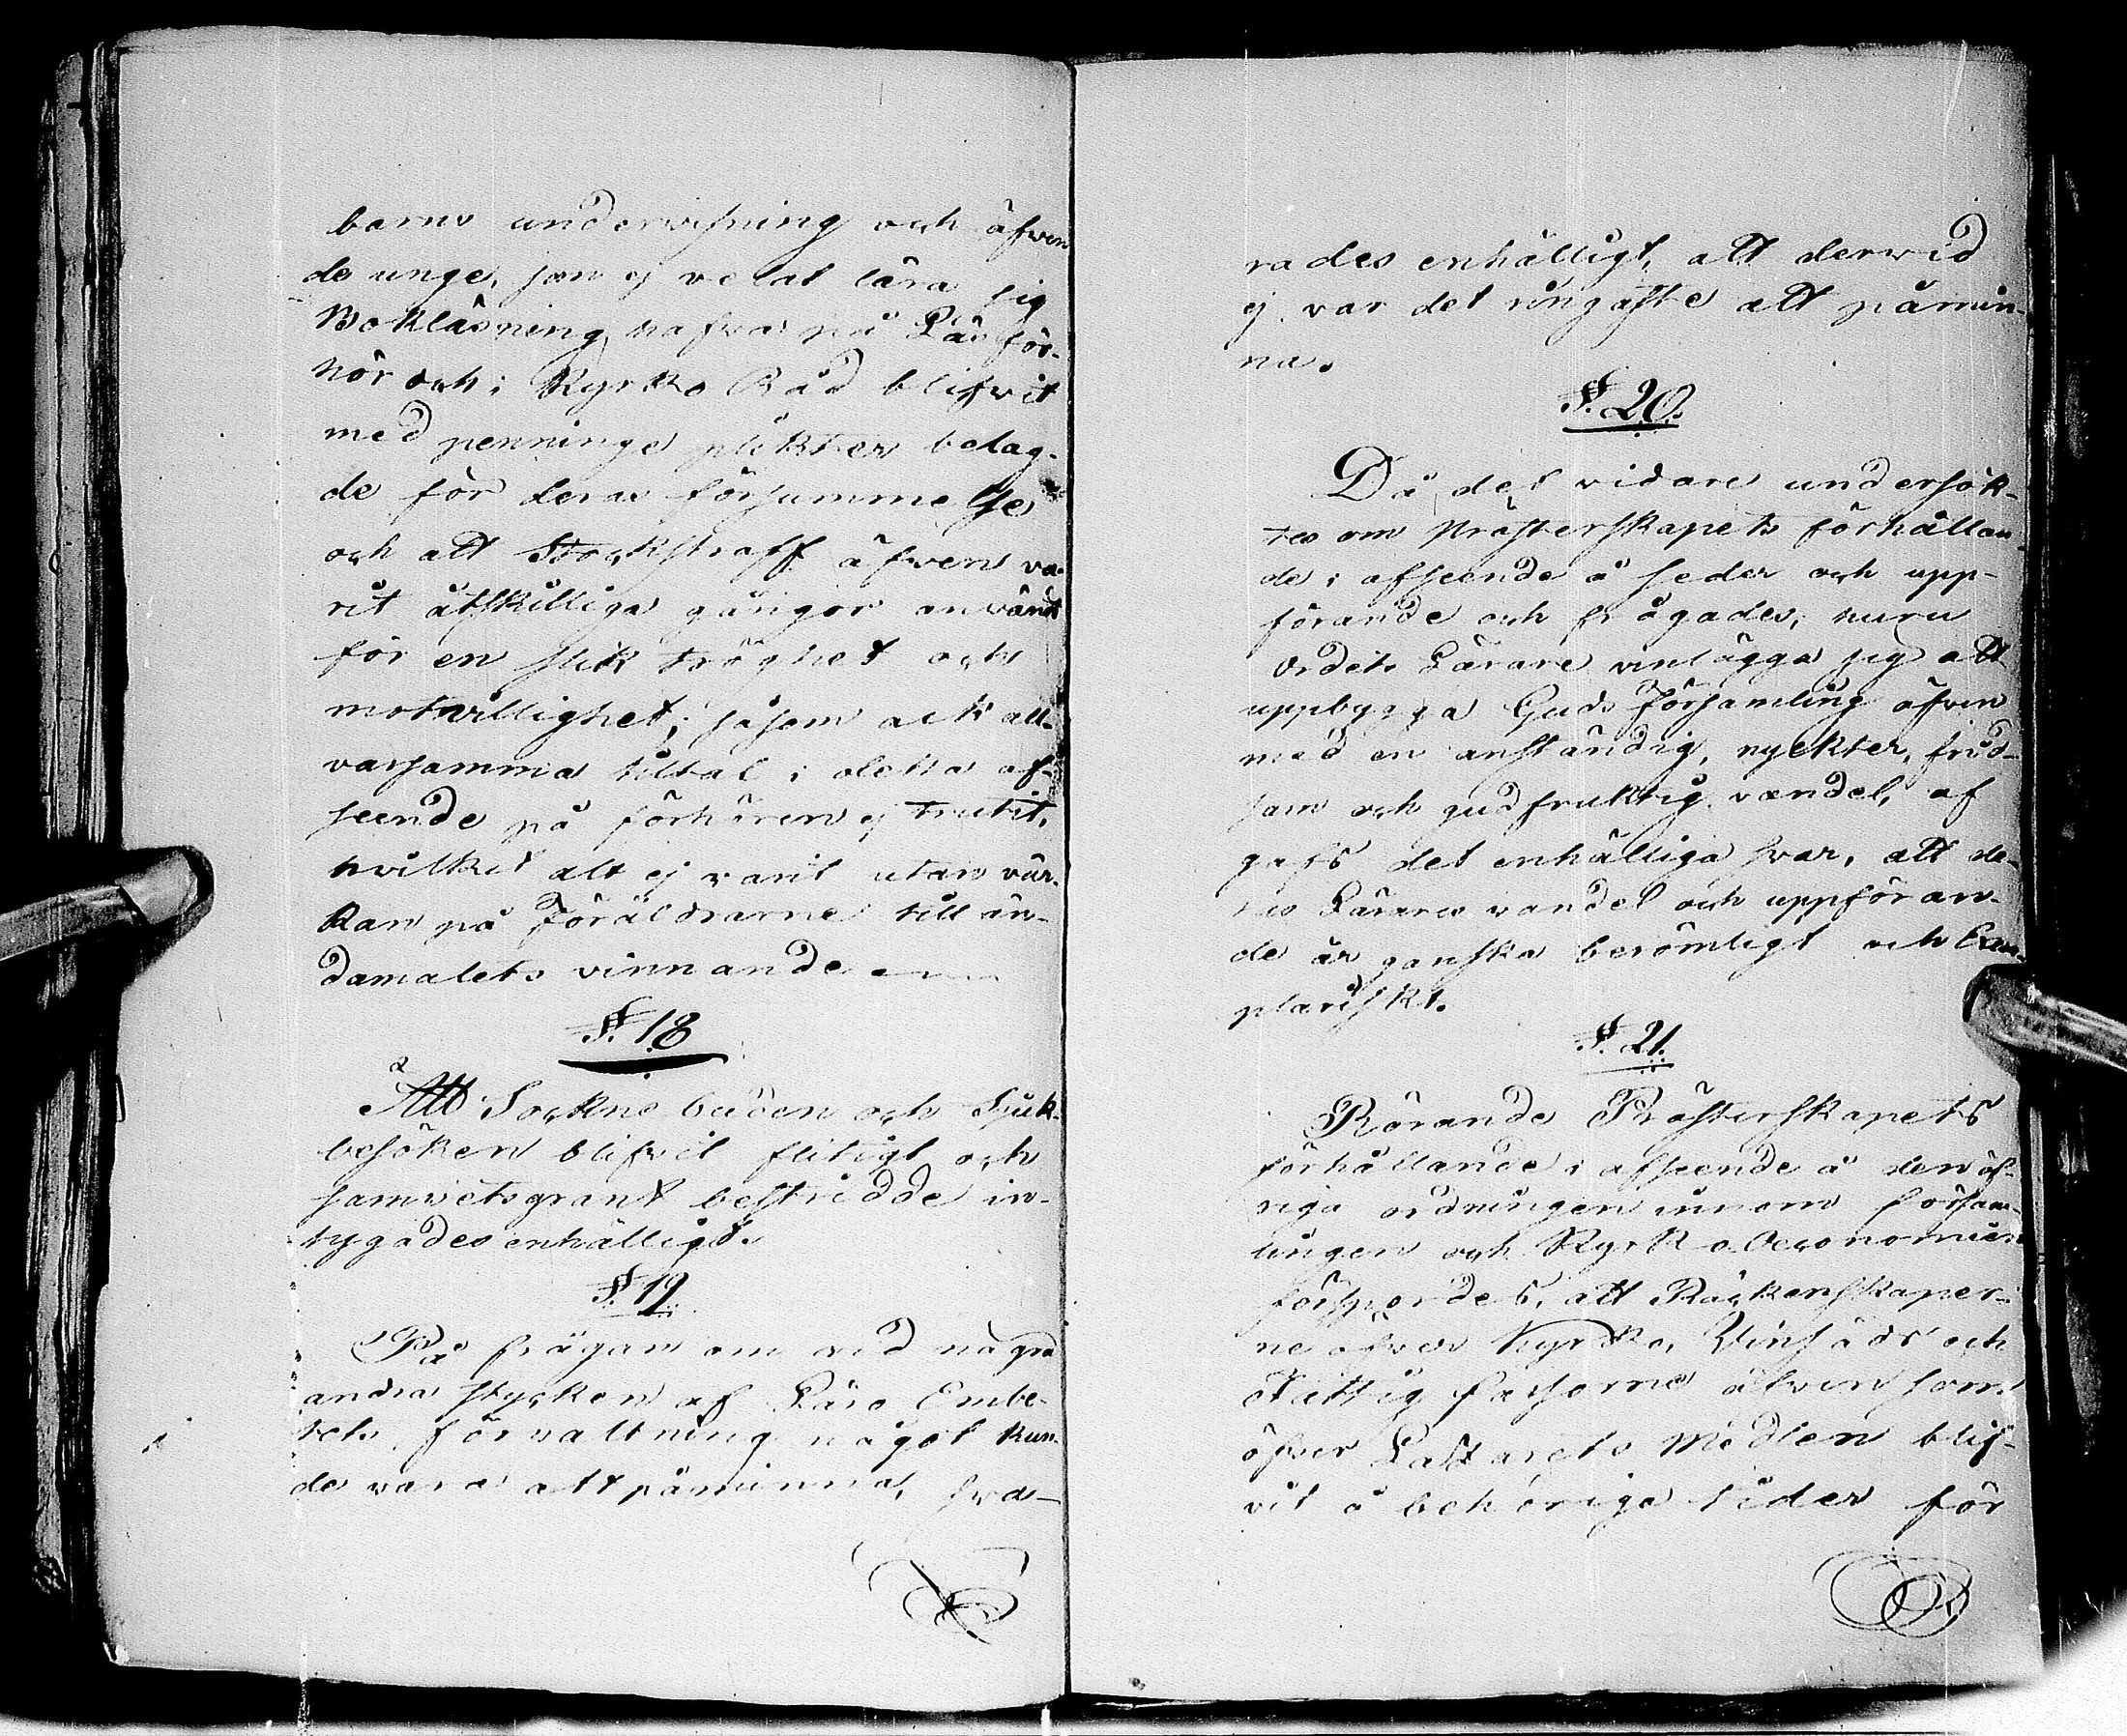 barns underwisning och äfven
de unge, som ej velat lära sig
Bokläsning, hafva på Läsför-
hör och i Kyrko Råd blifvit
med penninge plikter belag-
de för deras försummelse
och att Stockstraff äfven va-
rit åtskilliga gångor användt
för en slik tröghet och
motvillighet; såsom ock all-
varsamma tilltal i detta af-
seende på förhören ej trutit,
hvilket alt ej varit utan vär-
kan på Föräldrarne till än-
damalets vinnande
§. 18
Att Sockne buden och Sjuk-
besöken blifvit flitigt och
samvetsgrant bestridde in-
tygades enhälligt.
§. 19
På frågan om vid några
andra stycken af Läro Embe-
tets förvaltning något kun-
de vara att påminna, sva-
rades enhälligt, att dervid
ej var det ringaste att påmin-
na.
§. 20.
Då det vidare undersök-
tes om Prästerskapets förhållan-
de i afseende å seder och upp-
förande och frågades, huru
Ordets Lärare vinlägga sig att
uppbygga Guds Församling äfven
med en anständig, nyckter, frid-
sam och gudfruktig vandel, af
gafs det enhälliga svar, att de-
ras Lärares vandel och uppföran-
de är ganska berömligt och Exem-
plariskt.
§. 21.
Rörande Prästerskapets
förhållande i afseende å den öf-
riga ordningen innom försam-
lingen och Kyrko Oeconomien
försporдes, att Räkenskaper-
ne öfver Kyrko, Vinsäds och
Fattig Cassorne äfven som
öfver Lassarets Medlen blif-
vit å behöriga tider för